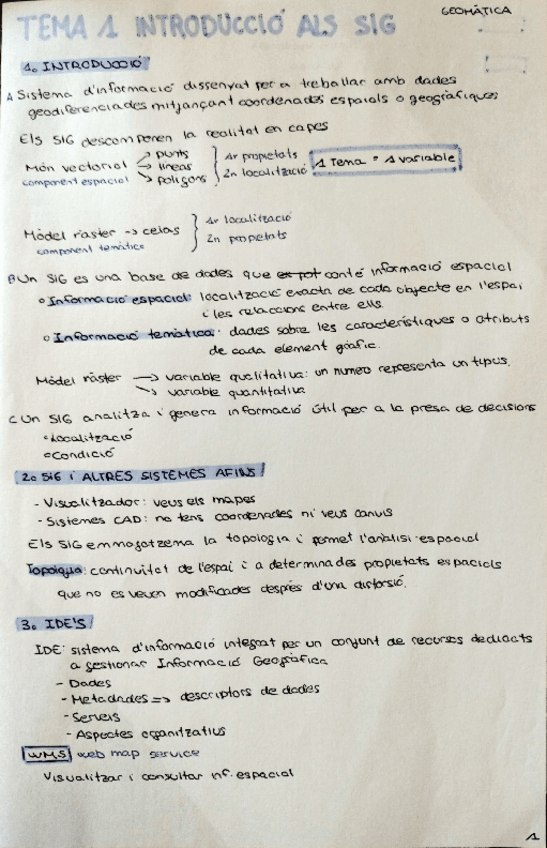 GEOMÀTICA
TEMA 1 INTRODUCCIÓ ALS SIG
1. INTRODUCCIÓ
A Sistema d'informació dissenyat per a treballar amb dades
geodiferenciades mitjançant coordenades espaials o geogràfiques
Els SIG descomponen la realitat en capes
Món vectorial → punts
component espacial → líneas
→ polígons
1r propietats
2n localització
1 Tema = 1 variable
Mòdel raster → celas
component temàtica
1r localització
2n propietats
B Un SIG es una base de dades que conté informació espacial
o Informació espacial: localització exacta de cada objecte en l'espai
i les relaccions entre ells.
o Informació temàtica: dades sobre les característiques o atributs
de cada element gràfic.
Mòdel ràster → variable qualitativa: un numero representa un tipus.
→ variable quantitativa
C Un SIG analitza i genera informació útil per a la presa de decisions
• Localització
• Condició
2. SIG i ALTRES SISTEMES AFINS
- Visualitzador: veus els mapes
- Sistemes CAD: no tens coordenades ni veus canvis
Els SIG emmagatzema la topologia i permet l'anàlisi espacial
Topologia: continuitat de l'espai i a determinades propietats espacials
que no es veuen modificades després d'una distorsió.
3. IDE'S
IDE: sistema d'informació integrat per un conjunt de recursos dedicats
a gestionar Informació Geogràfica
- Dades
- Metadades => descriptors de dades
- Serveis
- Aspectes organitzatius
WMS web map service
Visualitzar i consultar inf. espacial
1